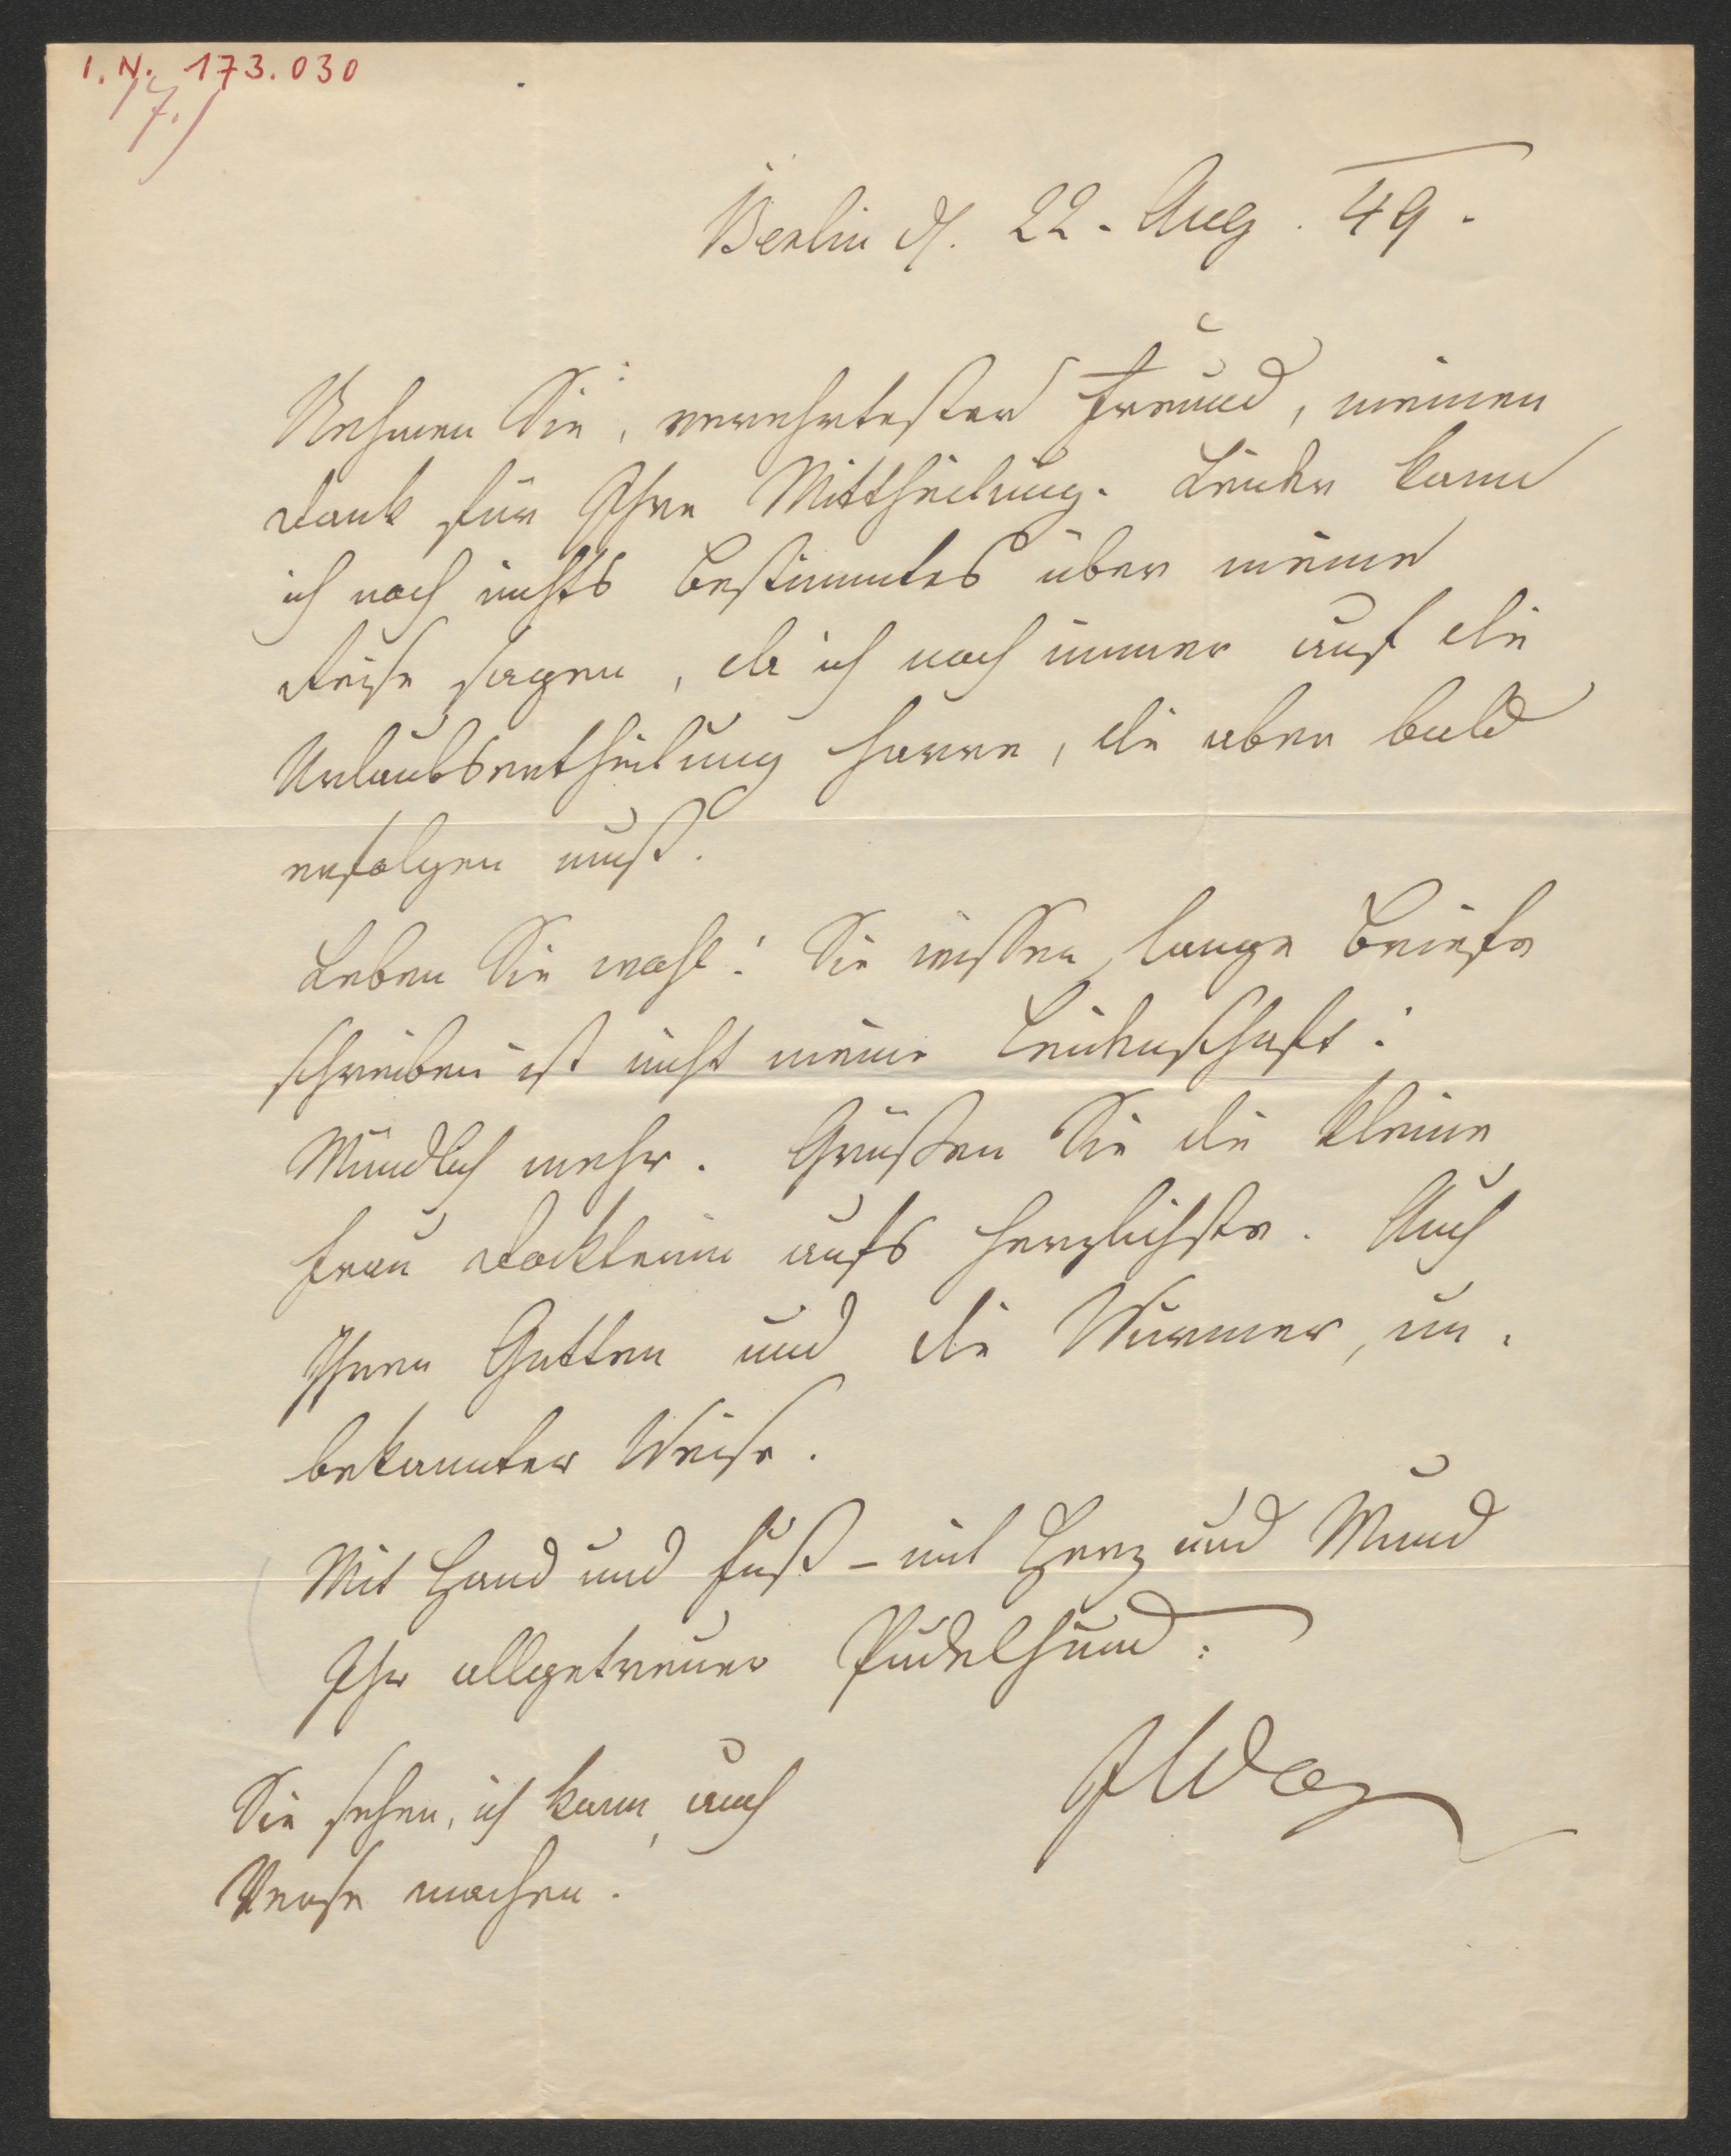 I. N. 173.030
17.)
Berlin d. 22. Aug. 49.
Nehmen Sie, verehrtester Freund, meinen
Dank für Ihre Mittheilung. Leider kann
ich noch nichts Bestimmtes über meine
Reise sagen, da ich noch immer auf die
Urlaubsertheilung harre, die aber bald
erfolgen muß.
Leben Sie wohl! Sie wissen, lange Briefe
schreiben ist nicht meine Leidenschaft:
Mündlich mehr. Grüßen Sie die kleine
Frau Doktorin aufs herzlichste. Auch
Ihren Gatten und die Würmer, un-
bekannter Weise.
Mit Hand und Fuß – mit Herz und Mund
Ihr allgetreuer Pudelhund:
Sie sehen, ich kann auch
Verse machen.